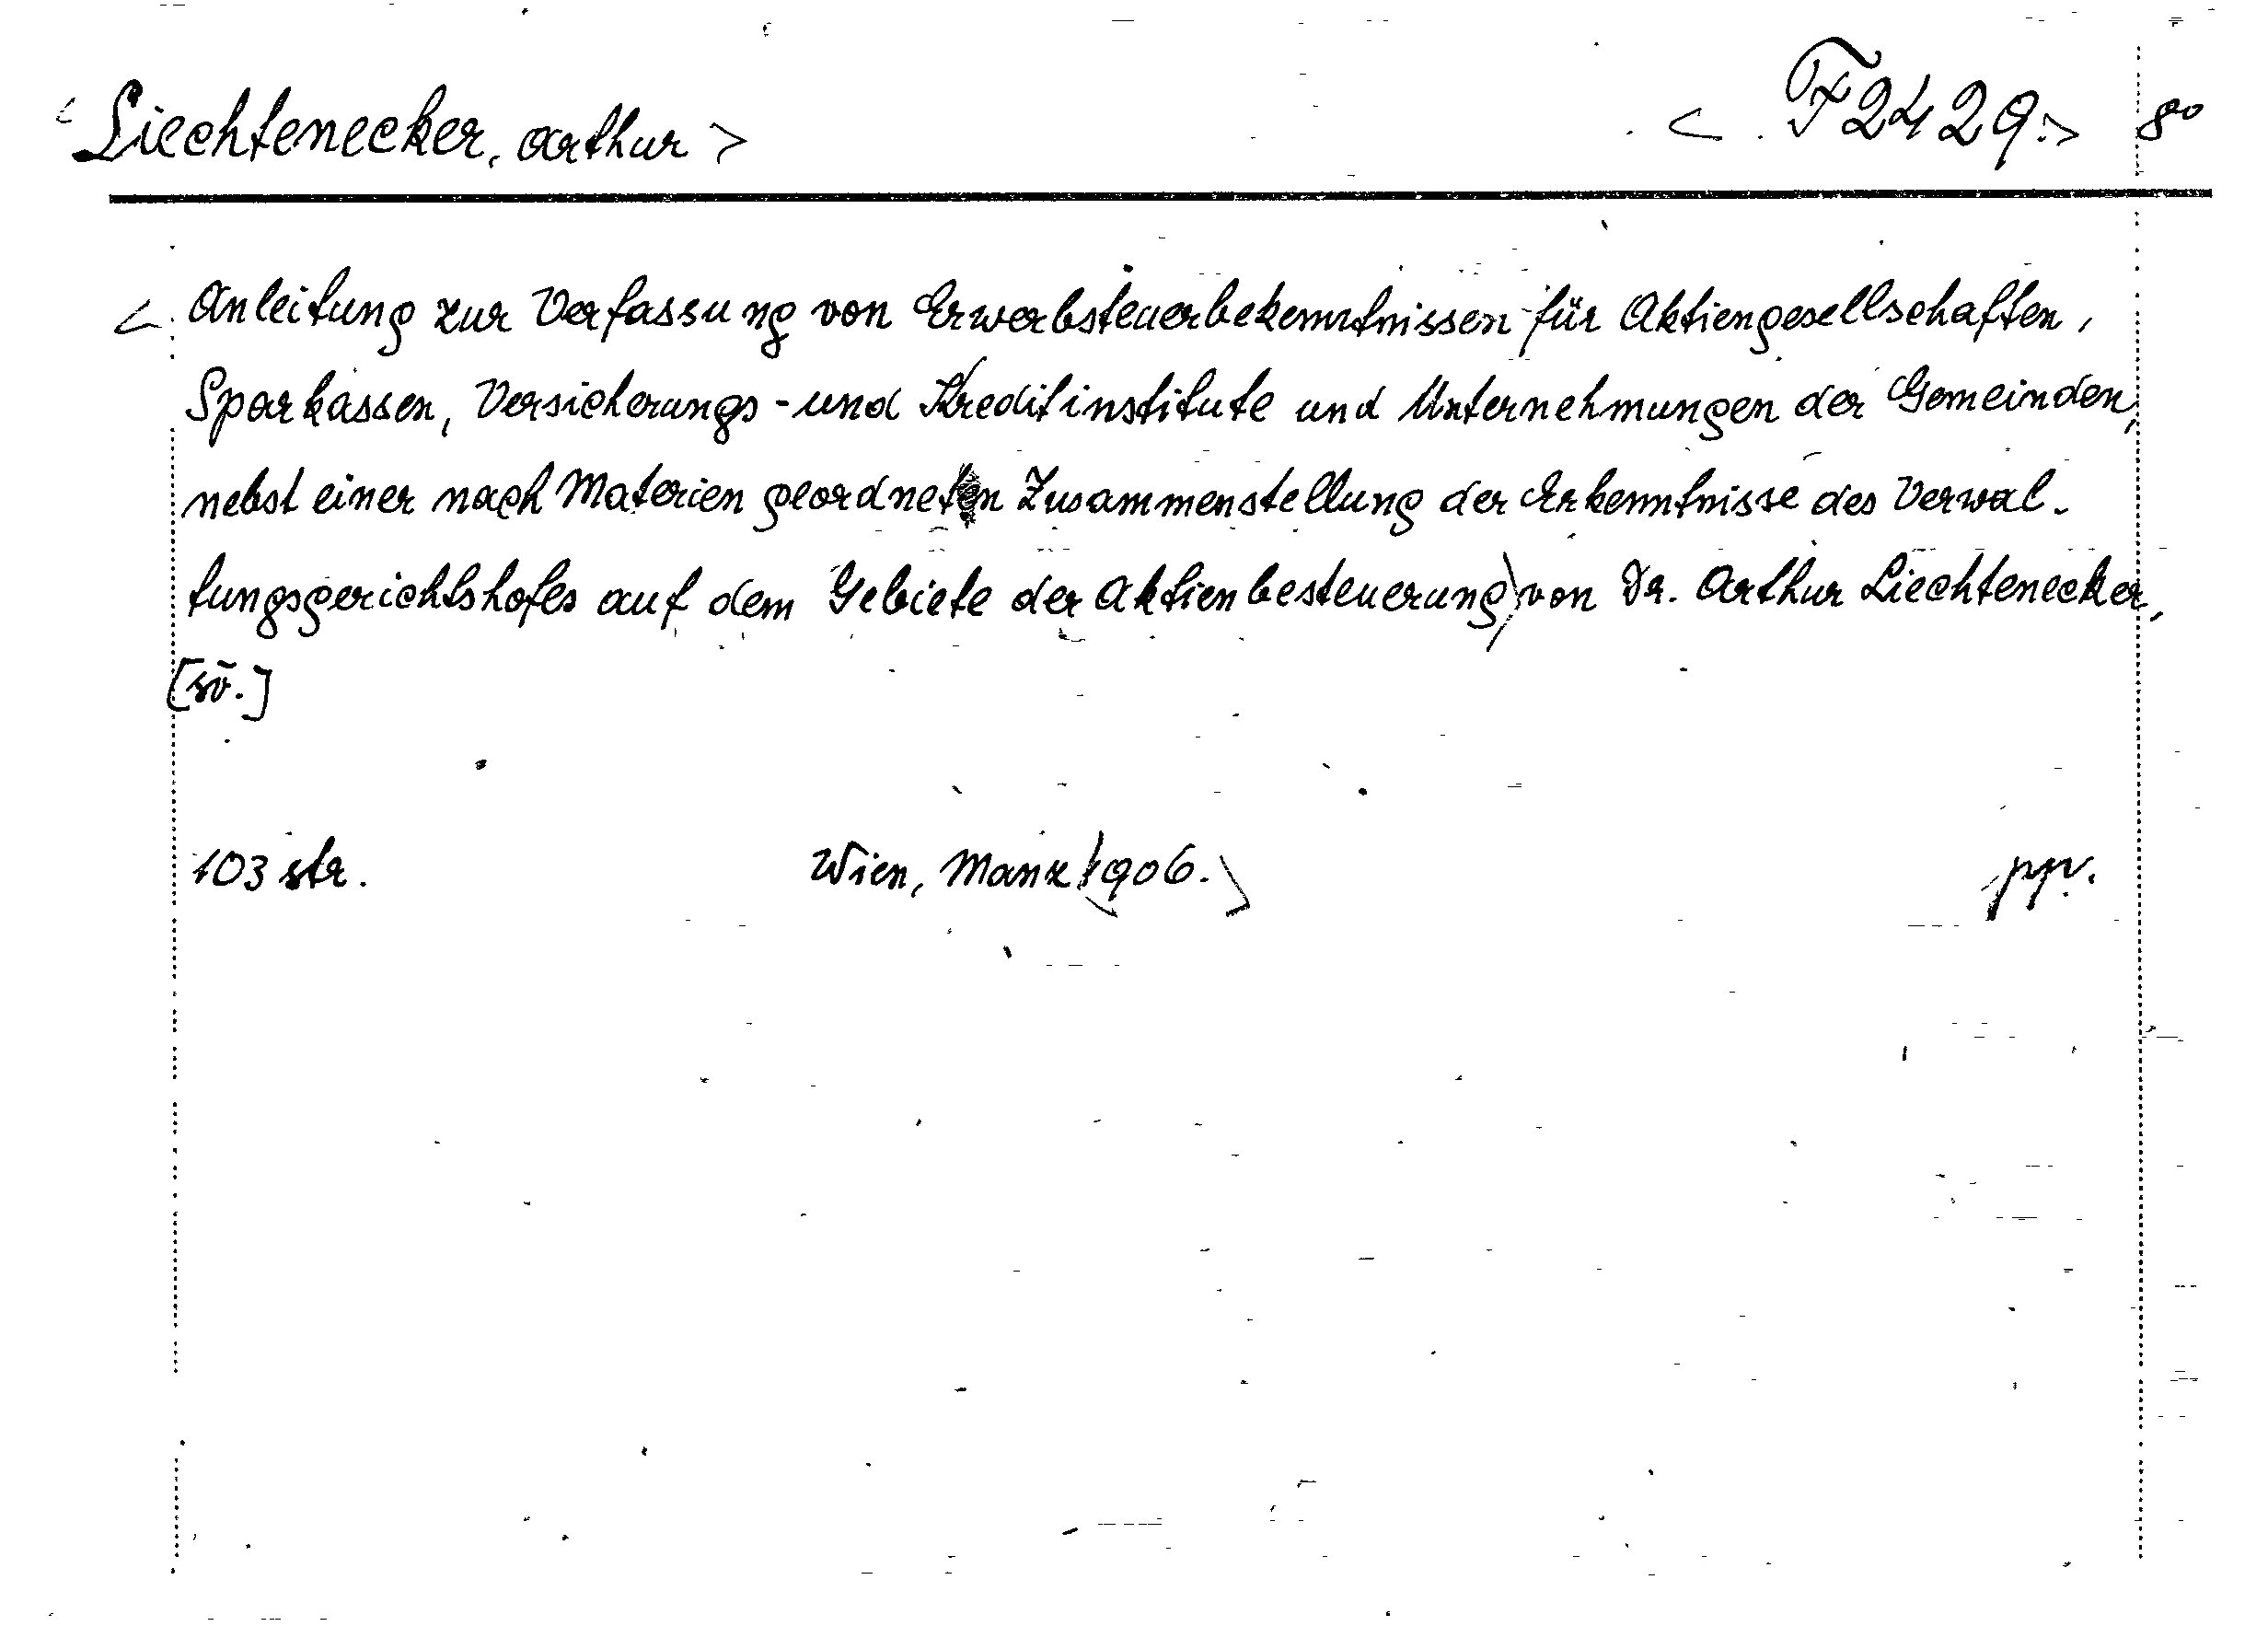 <Liechtenecker, Arthur> <F 2429.> 8°
<Anleitung zur Verfassung von Erwerbsteuerbekenntnissen für Aktiengesellschaften,
Sparkassen, Versicherungs- und Kreditinstitute und Unternehmungen der Gemeinden,
nebst einer nach Materien geordneten Zusammenstellung der Erkenntnisse des Verwal-
tungsgerichtshofes auf dem Gebiete der Aktienbesteuerung) von Dr. Arthur Liechtenecker,
103 str. Wien, Manz 1906.> ppv.